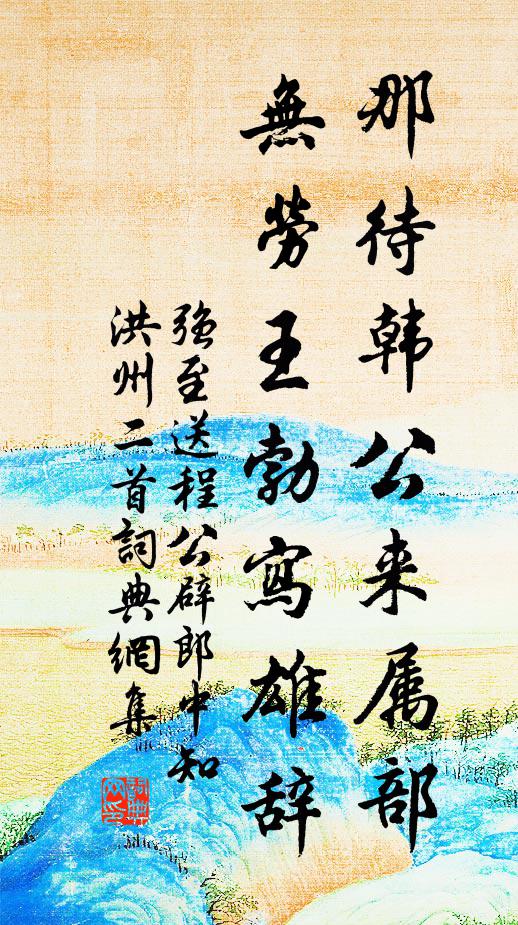 那待韩公来属部
無勞王勃寫雄辞
强至送程公辟郎中知
洪州二首詞典網集